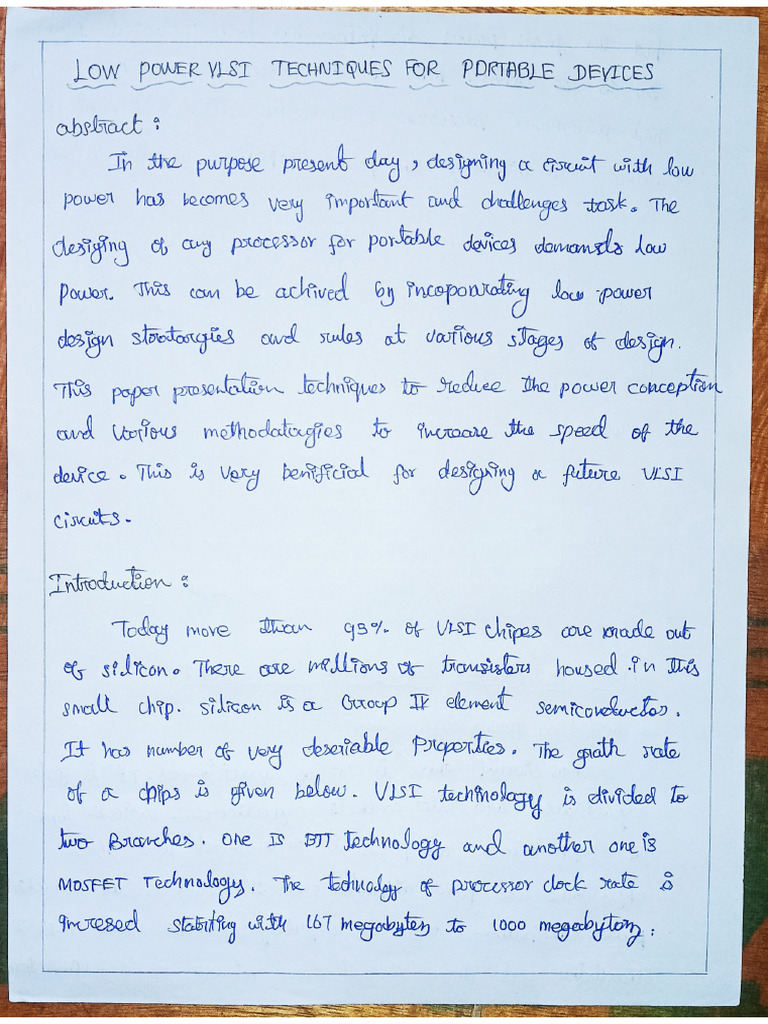 LOW POWER VLSI TECHNIQUES FOR PORTABLE DEVICES
abstract :
In the purpose present day, designing a circuit with low
power has becomes very important and challenges task. The
desiging of any processor for portable devices demands low
power. This can be achived by incoporating low power
design stratargies and rules at various stages of design.
This paper presentation techniques to reduce the power conception
and various methodatargies to increare the speed of the
device. This is very benificial for designing a future VLSI
circuts.
Introduction :
Today more than 95% of VLSI chipes are made out
of silicon. There are millions of transisters housed in this
small chip. silicon is a Group IV element semiconductor.
It has number of very deseriable Properties. The grath rate
of a chips is given below. VLSI techinology is divided to
two Branches. one is BJT technology and another one is
MOSFET Technology. The technology of processor clock rate is
incresed statrting with 167 megabytes to 1000 megabytes.